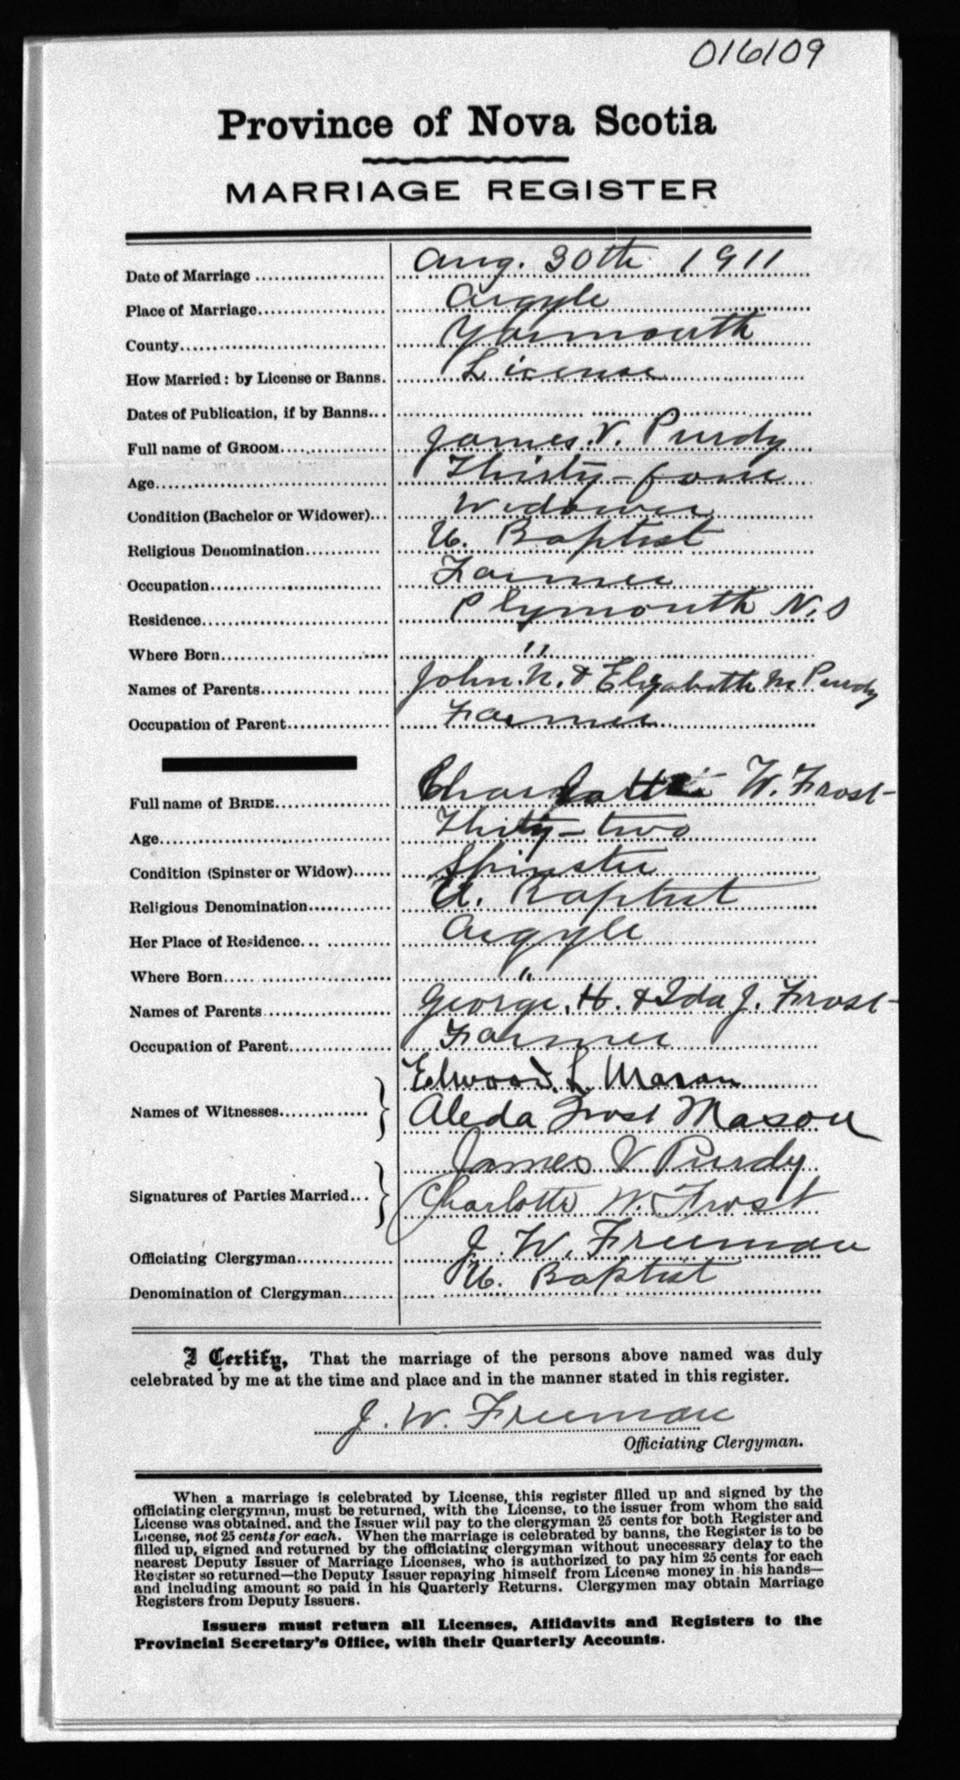 016109
Province of Nova Scotia
MARRIAGE REGISTER
Date of Marriage Aug. 30th 1911
Place of Marriage Argyle
County Yarmouth
How Married: by License or Banns. License
Dates of Publication, if by Banns
Full name of GROOM James. V. Purdy
Age Thirty-four
Condition (Bachelor or Widower) Widower
Religious Denomination U. Baptist
Occupation Farmer
Residence Plymouth N.S
Where Born "
Names of Parents John. N. & Elizabeth M Purdy
Occupation of Parent Farmer
Full name of BRIDE Charlotte W. Frost
Age Thirty-two
Condition (Spinster or Widow) Spinster
Religious Denomination U. Baptist
Her Place of Residence Argyle
Where Born "
Names of Parents George. H. & Ida J. Frost
Occupation of Parent Farmer
Elwood L Mason
Names of Witnesses Aleda Frost Mason
James V Purdy
Signatures of Parties Married Charlotte W. Frost
Officiating Clergyman J. W. Freeman
Denomination of Clergyman U. Baptist
I Certify, That the marriage of the persons above named was duly
celebrated by me at the time and place and in the manner stated in this register.
J. W. Freeman
Officiating Clergyman.
When a marriage is celebrated by License, this register filled up and signed by the
officiating clergyman, must be returned, with the License, to the issuer from whom the said
License was obtained, and the Issuer will pay to the clergyman 25 cents for both Register and
License, not 25 cents for each. When the marriage is celebrated by banns, the Register is to be
filled up, signed and returned by the officiating clergyman without unnecessary delay to the
nearest Deputy Issuer of Marriage Licenses, who is authorized to pay him 25 cents for each
Register so returned—the Deputy Issuer repaying himself from License money in his hands—
and including amount so paid in his Quarterly Returns. Clergymen may obtain Marriage
Registers from Deputy Issuers.
Issuers must return all Licenses, Affidavits and Registers to the
Provincial Secretary's Office, with their Quarterly Accounts.